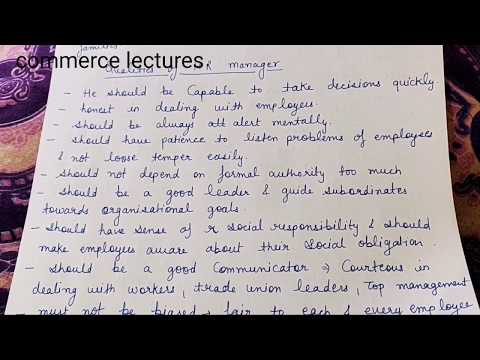 commerce lectures.
Qualities of HR manager
- He should be Capable to take decisions quickly.
- honest in dealing with employees.
- should be always alert mentally.
- should have patience to listen problems of employees
& not loose temper easily.
- should not depend on formal authority too much
- should be a good leader & guide subordinates
towards organisational goals.
- should have sense of r social responsibility & should
make employees aware about their social obligation.
- should be a good Communicator → Courteous in
dealing with workers, trade union leaders, Top management
- must not be biased → fair to each & every employee